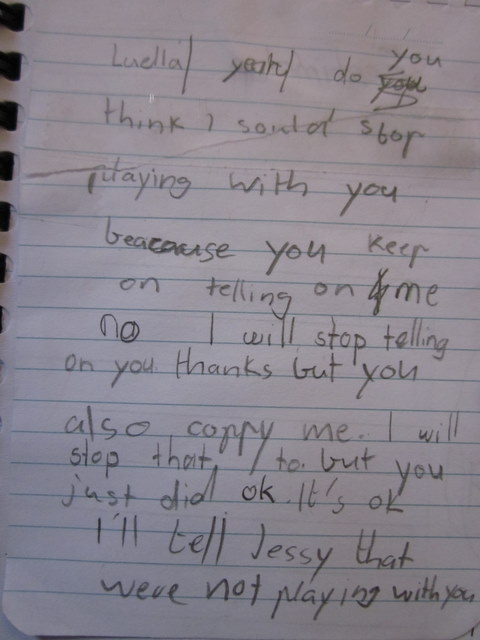 Luella/ yeah/ do you
think I sould stop
playing with you
beacause you keep
on telling on me
no I will stop telling
on you. thanks but you
also coppy me. I will
stop that to. but you
just did ok. It's ok
I'll tell Jessy that
were not playing with you